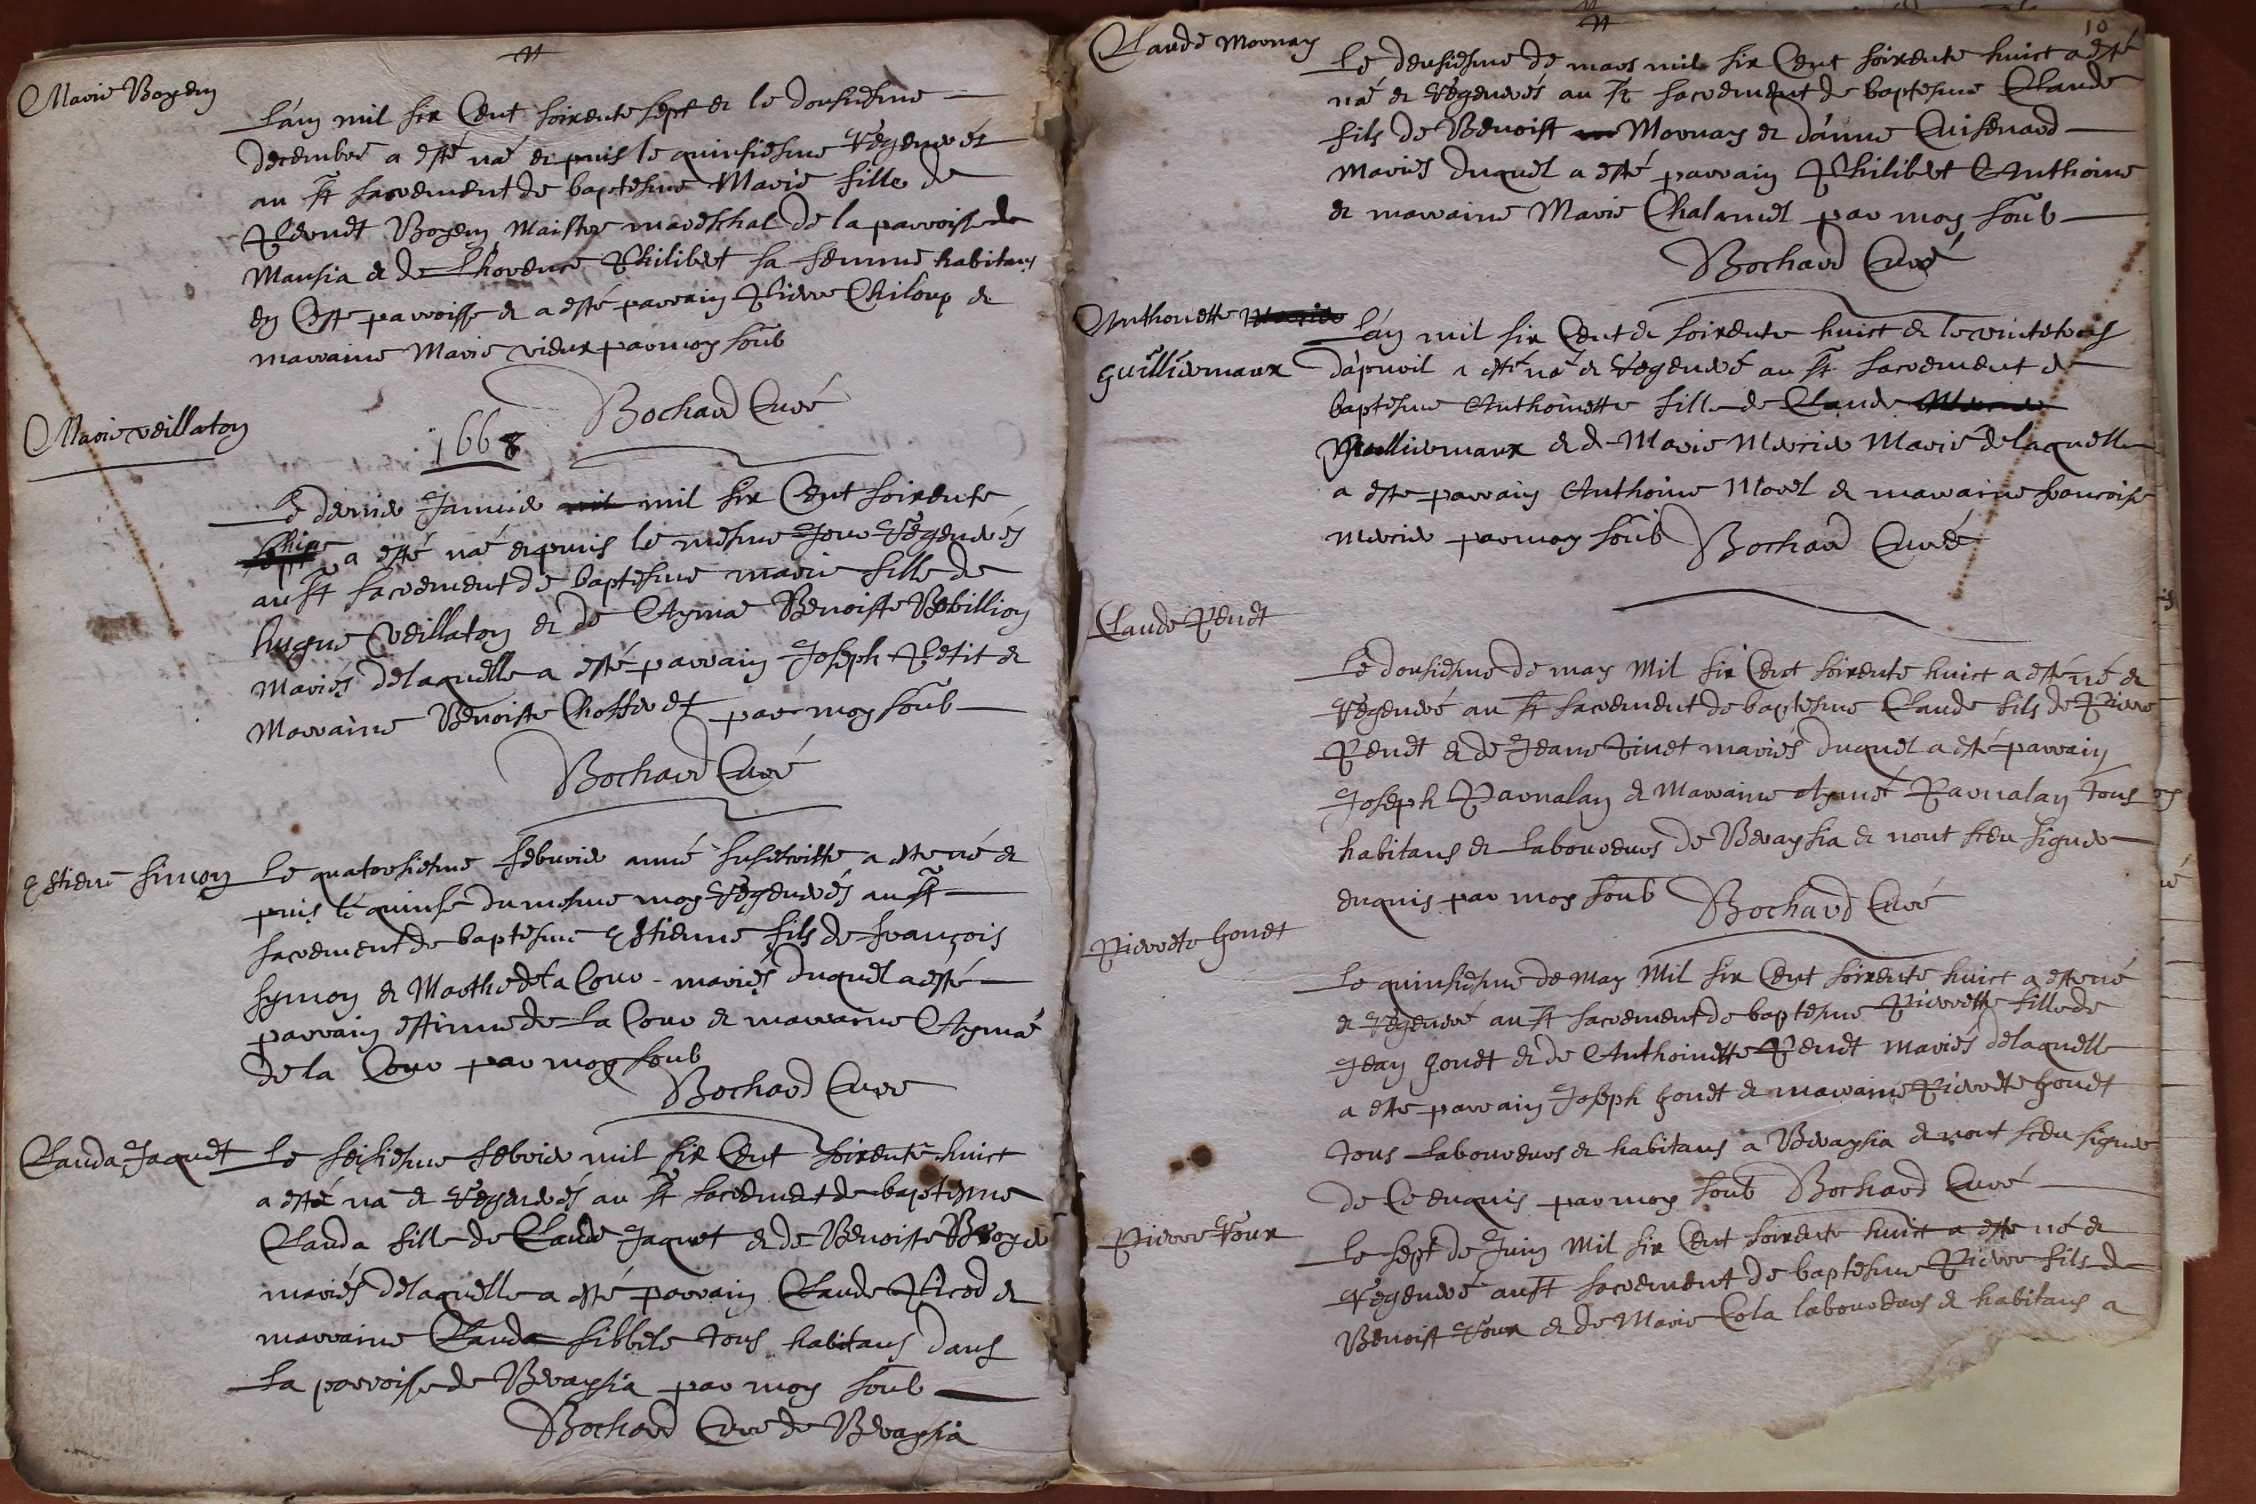 Marie Boyery
L'an mil six Cent soixente sept et le dousiesme
decembre a esté né et puis le quinsiesme regenerés
au St sacrement de baptesme Marie fille de
Pernet Boyery Maistre mareschal de la parroisse de
Mansia et de Philibet sa femme habitans
en Cette parroisse et a esté parrain Pierre Chiloup et
marraine Marie vieux par moy soub
Bochard Curé
1668
Marie veillaton
Le dernier Janvier mil six Cent soixente
huict a esté né et puis le mesme Jour regenerés
au St sacrement de baptesme marie fille de
hugue veillaton et de Ayma Benoiste Rebillion
mariés de laquelle a esté parrain Joseph Petit et
Marraine Benoiste Chosseret par moy soub
Bochard Curé
Estiene Simon
Le quatorsiesme febvrier anné susescritte a esté né et
puis le quinse du mesme moy regenerés au St
sacrement de baptesme Estienne fils de françois
Symon et Marthe de la Cour mariés duquel a esté
parrain estienne de La Cour et marraine Ayma
de la Cour par moy soub
Bochard Curé
Clauda Jaquet
Le seisiesme febvrier mil six Cent soixente huict
a esté né et regenerés au St sacrement de baptisme
Clauda fille de Claude Jaquet et de Benoiste Broyer
mariés de laquelle a esté parrain Claude Picod et
marraine Clauda sibbele tous habitans dans
La parroisse de Beraysia par moy soub
Bochard Curé de Beraysia
10
Claude Mornay
Le deusiesme de mars mil six Cent soixente huict a esté
né et regenerés au St sacrement de baptesme Claude
fils de Benoist Mornay et d'anne Cuisenard
mariés duquel a esté parrain Philibet Anthoine
et marraine Marie Chalamel par moy soub
Bochard Curé
Anthoinette
guilliermaux
L'an mil six Cent et soixente huict et le vintetrois
d'apvril a esté né et regeneré au St sacrement de
baptesme Anthoinette fille de Claude
Guilliermaux et de Marie Mercier Marié de laquelle
a esté parrain Anthoine Morel et marraine francoise
mercier par moy soub Bochard Curé
Claude Penet
Le dousiesme de may Mil six Cent soixente huict a esté né et
regeneré au St sacrement de baptesme Claude fils de Pierre
Penet et de Jeane Pinet mariés duquel a esté parrain
Joseph Parnalan et Marraine aymé Parnalan tous
habitans et Laboureurs de Beraysia et nont sceu signer
enquis par moy soub Bochard Curé
Pierrete gonet
Le quinsiesme de May Mil six Cent soixente huict a esté né
et regeneré au St sacrement de baptesme Pierrette fille de
Jean gonet et de Anthoinette Penet mariés de laquelle
a esté parrain Joseph gonet et marraine Pierrete gonet
tous Laboureurs et habitans a Beraysia et nont sceu signer
de Ce enquis par moy soub Bochard Curé
Pierre Roux
Le sept de Juin Mil six Cent soixente huict a esté né et
regeneré au St sacrement de baptesme Pierre fils de
Benoist Roux et de Marie Cola laboureurs et habitans a